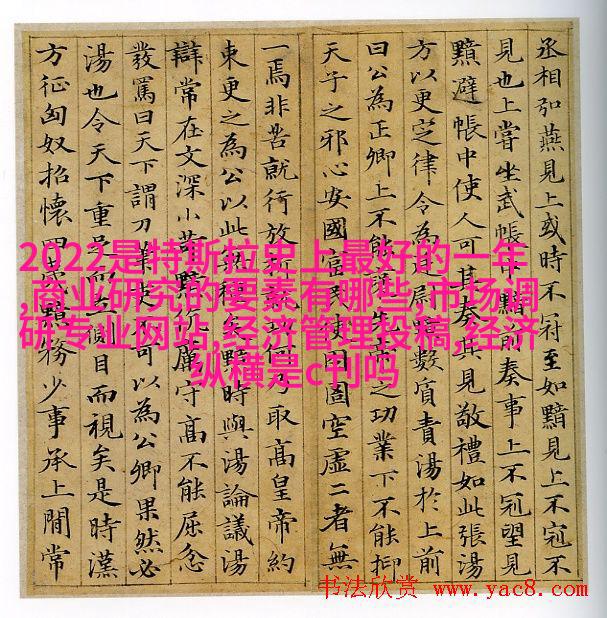 丞相弘燕見上或時不冠至如黯見上不冠不
見也上嘗坐武帳中黯前奏事上不冠望見
黯避帳中使人可其奏其見敬禮如此張湯
方以更定律令為廷尉黯數質責湯於上前
曰公為正卿上不能褒先帝之功業下不能抑
天子之邪心安國富民使囹圄空虛二者無
一焉非苦就行放析就功何乃取高皇帝約
束更之為公以此無種矣黯時與湯論議湯
辯常在文深小苛黯伉厲守高不能屈忿
發罵曰天下謂刀筆吏不可以為公卿果然必
湯也令天下重足而立側目而視矣是時漢
方征匈奴招懷四夷黯務少事承上間常
2022是特斯拉史上最好的一年
,商业研究的要素有哪些,市场调
研专业网站,经济管理投稿,经济
纵横是c刊吗
书法欣赏 www.yac8.com